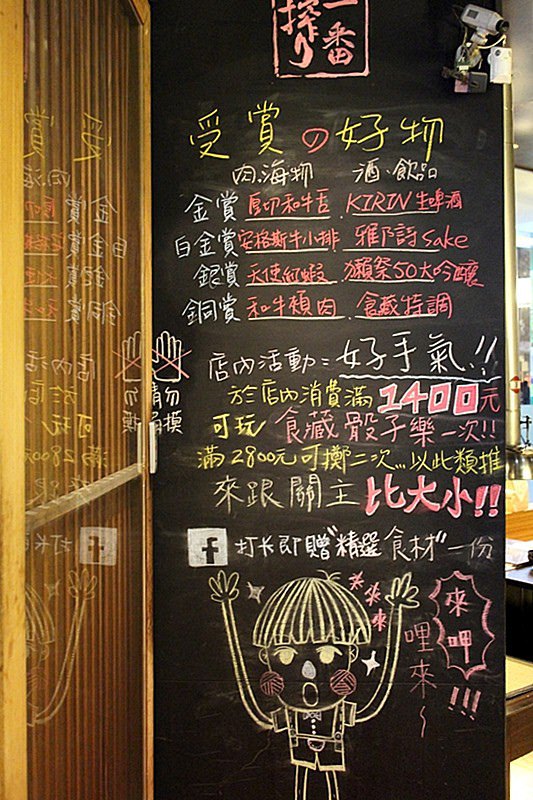 一番
搾り
受賞の好物
肉.海物 酒.飲品
金賞 厚切和牛舌 KIRIN生啤酒
白金賞 安格斯牛小排 雅詩Sake
銀賞 天使紅蝦 獺祭50大吟釀
銅賞 和牛頰肉 食藏特調
店內活動=好手氣!!
於店內消費滿1400元
可玩食藏骰子樂一次!!
滿2800元可擲二次...以此類推
來跟關主比大小!!
請勿
觸摸
f 打卡即贈"精選食材"一份
來來來
來呷
哩來~!!!